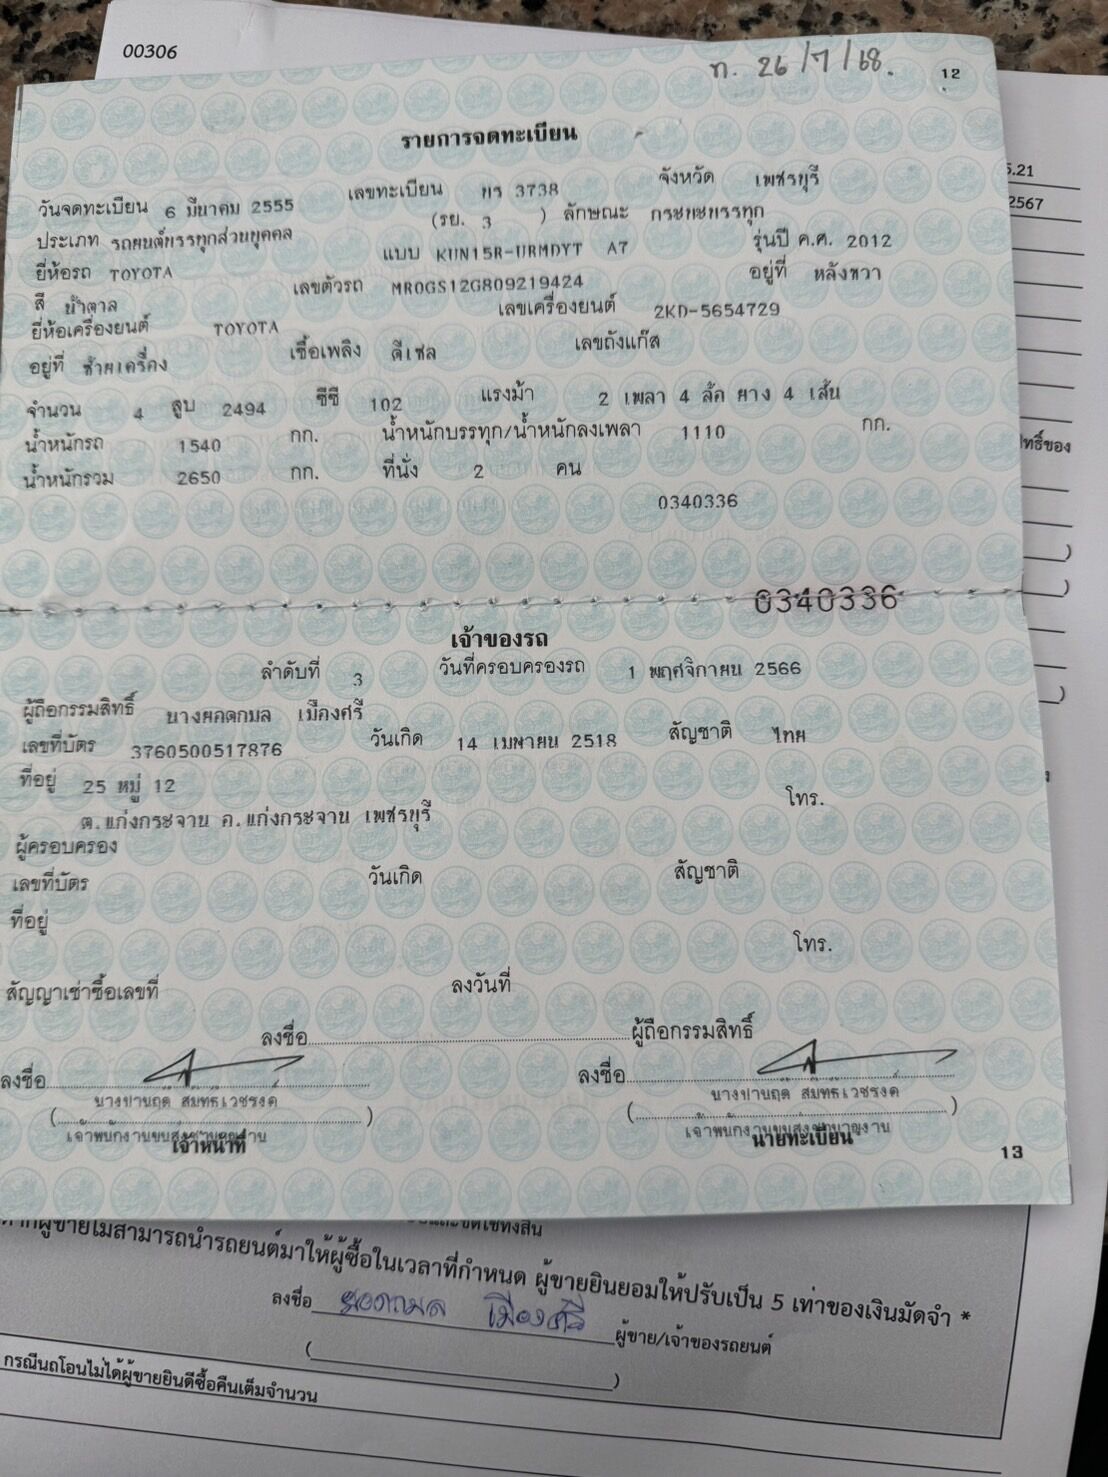 00306
ท. 26/7/68.
12
รายการจดทะเบียน
วันจดทะเบียน 6 มีนาคม 2555 เลขทะเบียน 3738 จังหวัด เพชรบุรี
ประเภท รถยนต์บรรทุกส่วนบุคคล (รย. 3 ) ลักษณะ กระบะบรรทุก
ยี่ห้อรถ TOYOTA แบบ KUN15R-URMDYT A7 รุ่นปี ค.ศ. 2012
สี น้ำตาล เลขตัวรถ MR0GS12G809219424 อยู่ที่ หลังขวา
ยี่ห้อเครื่องยนต์ TOYOTA เลขเครื่องยนต์ 2KD-5654729
อยู่ที่ ซ้ายเครื่อง เชื้อเพลิง ดีเซล เลขถังแก๊ส
จำนวน 4 สูบ 2494 ซีซี 102 แรงม้า 2 เพลา 4 ล้อ ยาง 4 เส้น
น้ำหนักรถ 1540 กก. น้ำหนักบรรทุก/น้ำหนักลงเพลา 1110 กก.
น้ำหนักรวม 2650 กก. ที่นั่ง 2 คน
0340336
0340336
เจ้าของรถ
ลำดับที่ 3 วันที่ครอบครองรถ 1 พฤศจิกายน 2566
ผู้ถือกรรมสิทธิ์ นางยอดกมล เมืองศรี
เลขที่บัตร 3760500517876 วันเกิด 14 เมษายน 2518 สัญชาติ ไทย
ที่อยู่ 25 หมู่ 12 โทร.
ต.แก่งกระจาน อ.แก่งกระจาน เพชรบุรี
ผู้ครอบครอง
เลขที่บัตร วันเกิด สัญชาติ
ที่อยู่
โทร.
สัญญาเช่าซื้อเลขที่ ลงวันที่
ลงชื่อ ผู้ถือกรรมสิทธิ์
ลงชื่อ ลงชื่อ
( ) ( )
เจ้าหน้าที่ นายทะเบียน
13
5.21
2567
ผู้ขายไม่สามารถนำรถยนต์มาให้ผู้ซื้อในเวลาที่กำหนด ผู้ขายยินยอมให้ปรับเป็น 5 เท่าของเงินมัดจำ *
ลงชื่อ ยอดกมล เมืองศรี ผู้ขาย/เจ้าของรถยนต์
( )
กรณีนถโอนไม่ได้ผู้ขายยินดีซื้อคืนเต็มจำนวน